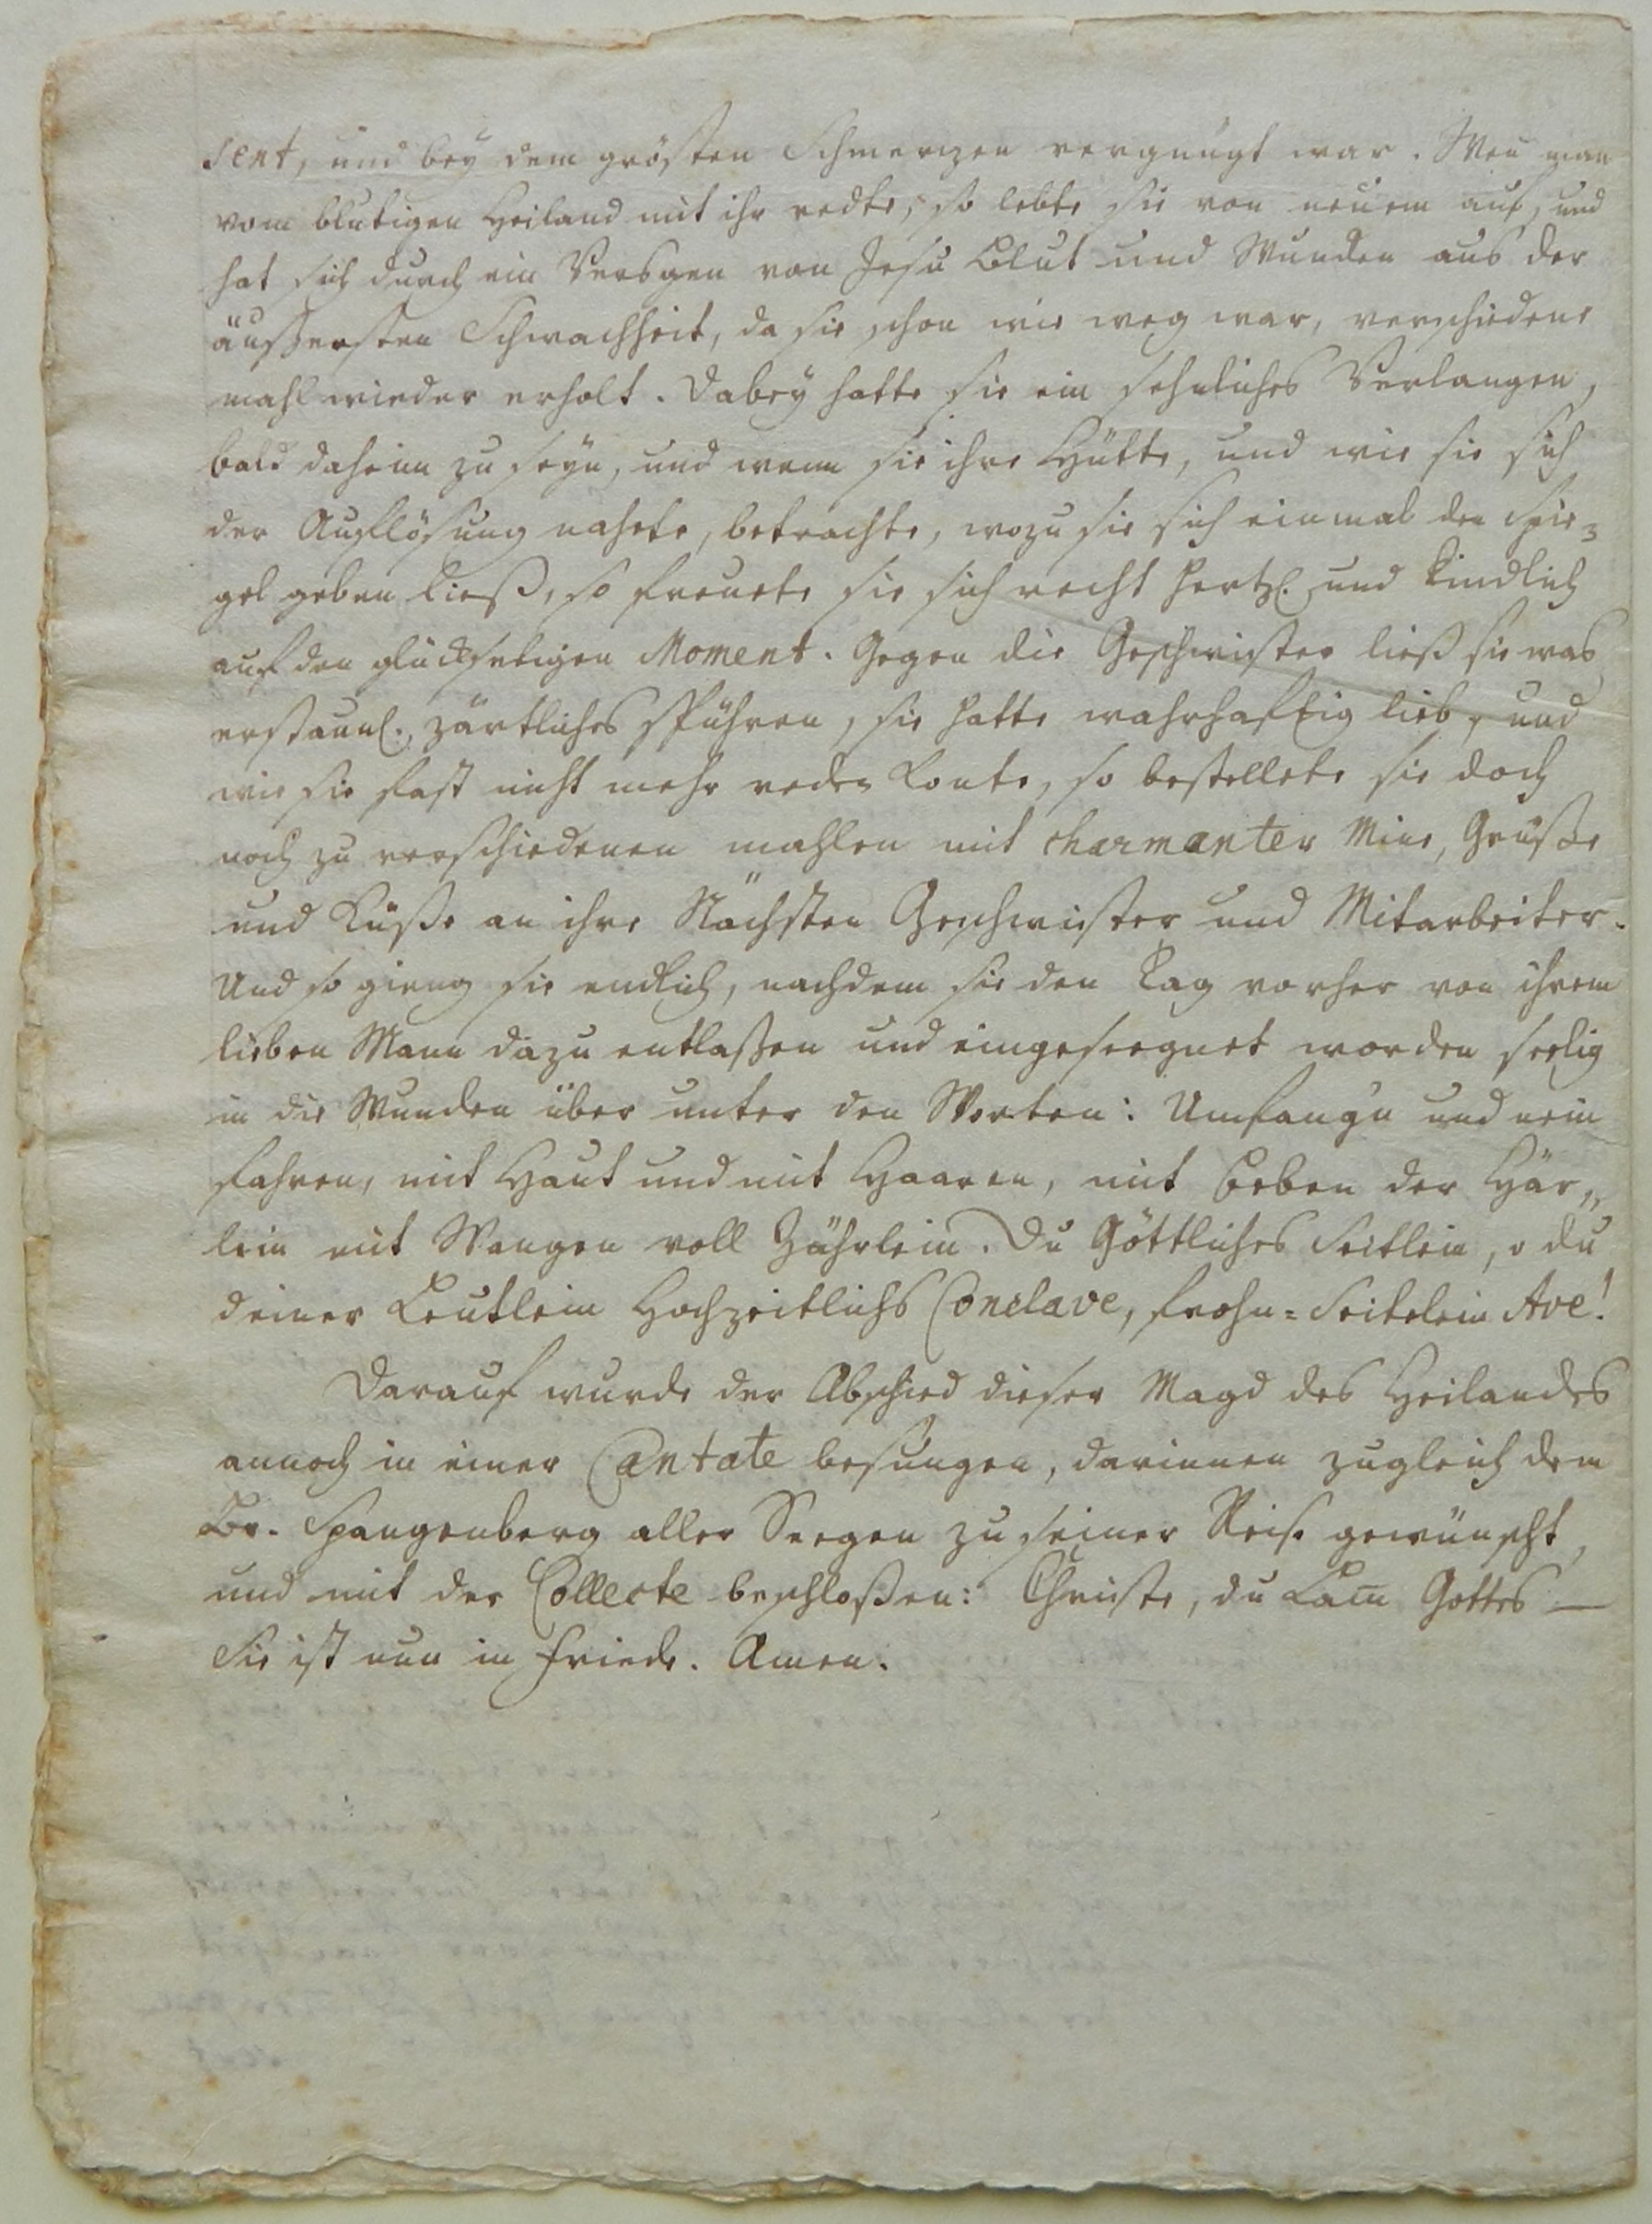 sent, und bey dem grösten Schmerzen vergnügt war. Wen man
vom blutigen Heiland mit ihr redte, so lebte sie von neuem auf, und
hat sich durch ein Versgen von Jesu Blut und Wunden aus der
äussersten Schwachheit, da sie schon wie weg war, verschiedene
mahl wieder erholt. Dabey hatte sie ein sehnliches Verlangen,
bald daheim zu seyn, und wenn sie ihre Hütte, und wie sie sich
der Auflösung nahete, betrachte, wozu sie sich einmal den Spie=
gel geben ließ, so freuete sie sich recht hertzl. und kindlich
auf den glückseligen Moment. Gegen die Geschwister ließ sie was
erstaunl. zärtliches spühren, sie hatte wahrhaftig lieb, und
wie sie fast nicht mehr reden konte, so bestellete sie doch
noch zu verschiedenen mahlen mit charmanter Mine, Grüße
und Küße an ihre Nächsten Geschwister und Mitarbeiter.
Und so gieng sie endlich, nachdem sie den Tag vorher von ihrem
lieben Mann dazu entlaßen und eingeseegnet worden seelig
in die Wunden über unter den Worten: Umfang'n und nein
fahren, mit Haut und mit Haaren, mit Beben der Här„
lein mit Wangen voll Zährlein. Du Göttliches Seitlein, o du
deiner Leutlein Hochzeitlichs Conclave, frohn=Seitelein Ave!
Darauf wurde der Abschied dieser Magd des Heilandes
annoch in einer Cantate besungen, darinnen zugleich dem
Br. Spangenberg aller Seegen zu seiner Reise gewünscht,
und mit der Collecte beschloßen: Christe, du Lam̅ Gottes —
Sie ist nun in Friede. Amen.